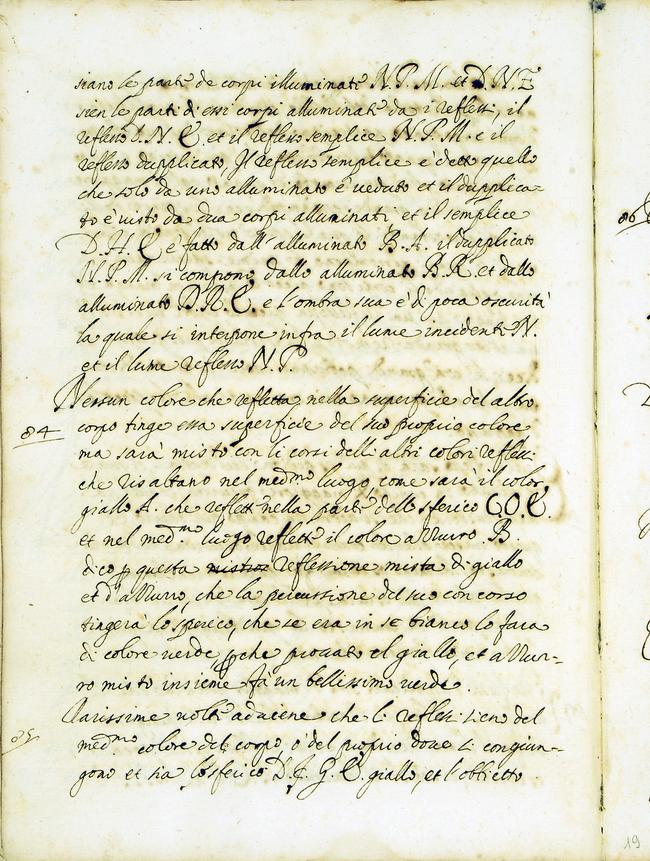 siano le parte de corpi illuminati N. P. M. et D. N. E
sien le parti di essi corpi alluminate da i reflessi, il
reflesso D. N. E. et il reflesso semplice N. P. M. e il
reflesso dupplicato, Il reflesso semplice e detto quello
che solo da uno alluminato è veduto et il dupplica-
to è visto da dua corpi alluminati et il semplice
D. H. E è fatto dall' alluminato B. A. il dupplicato
N. P. M. si compone dallo alluminato B. R. et dallo
alluminato D. R. E. e l'ombra sua è di poca oscurità
la quale si interpone infra il lume incidente N.
et il lume reflesso N. P.
Nessun colore che refletta nella superficie del altro
84
corpo tinge essa superficie del suo proprio colore
ma sarà misto con li corsi delli altri colori reflessi
che risaltano nel med.mo luogo, come sarà il color
giallo A. che reflette nella parte dello sferico C. O. E.
et nel med.mo luogo reflette il colore azzurro B.
dico p questa reflessione mista di giallo
et d'azzurro, che la percussione del suo concorso
tingerà lo sperico, che se era in se bianco lo fara
di colore verde, pche provato el giallo, et azzur-
ro misto insieme fà un bellissimo verde.
Rarissime volte adviene che li reflessi sieno del
85
med.mo colore del corpo, o' del proprio dove si congiun-
gono et sia lo sferico D. F. G. E. giallo, et l'obbietto
86
19